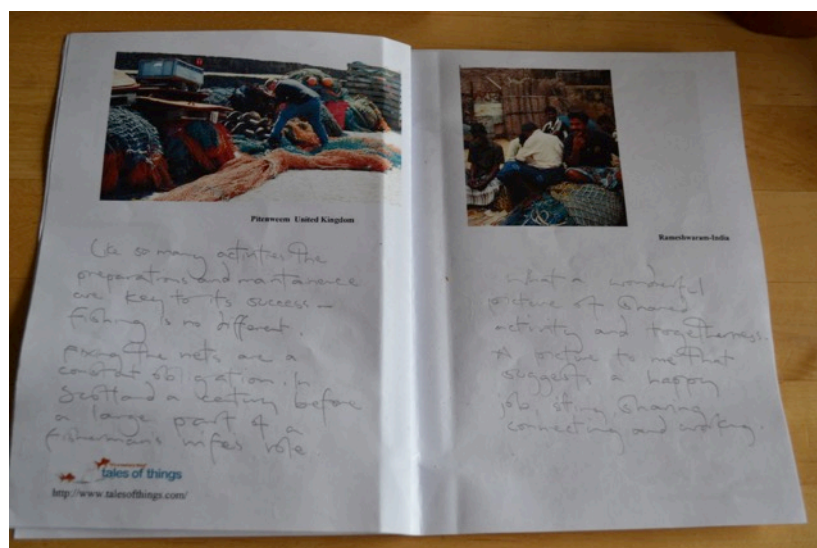 Pitenweem United Kingdom
Like so many activities the
preparations and maintainence
are key to its success –
Fishing is no different.
Fixing the nets are a
constant obligation. In
Scotland a century before
a large part of a
fisherman's wifes role
tales of things
http://www.talesofthings.com/
Rameshwaram-India
What a wonderful
picture of shared
activity and togetherness.
A picture to me that
suggests a happy
job, sharing
connecting and working.